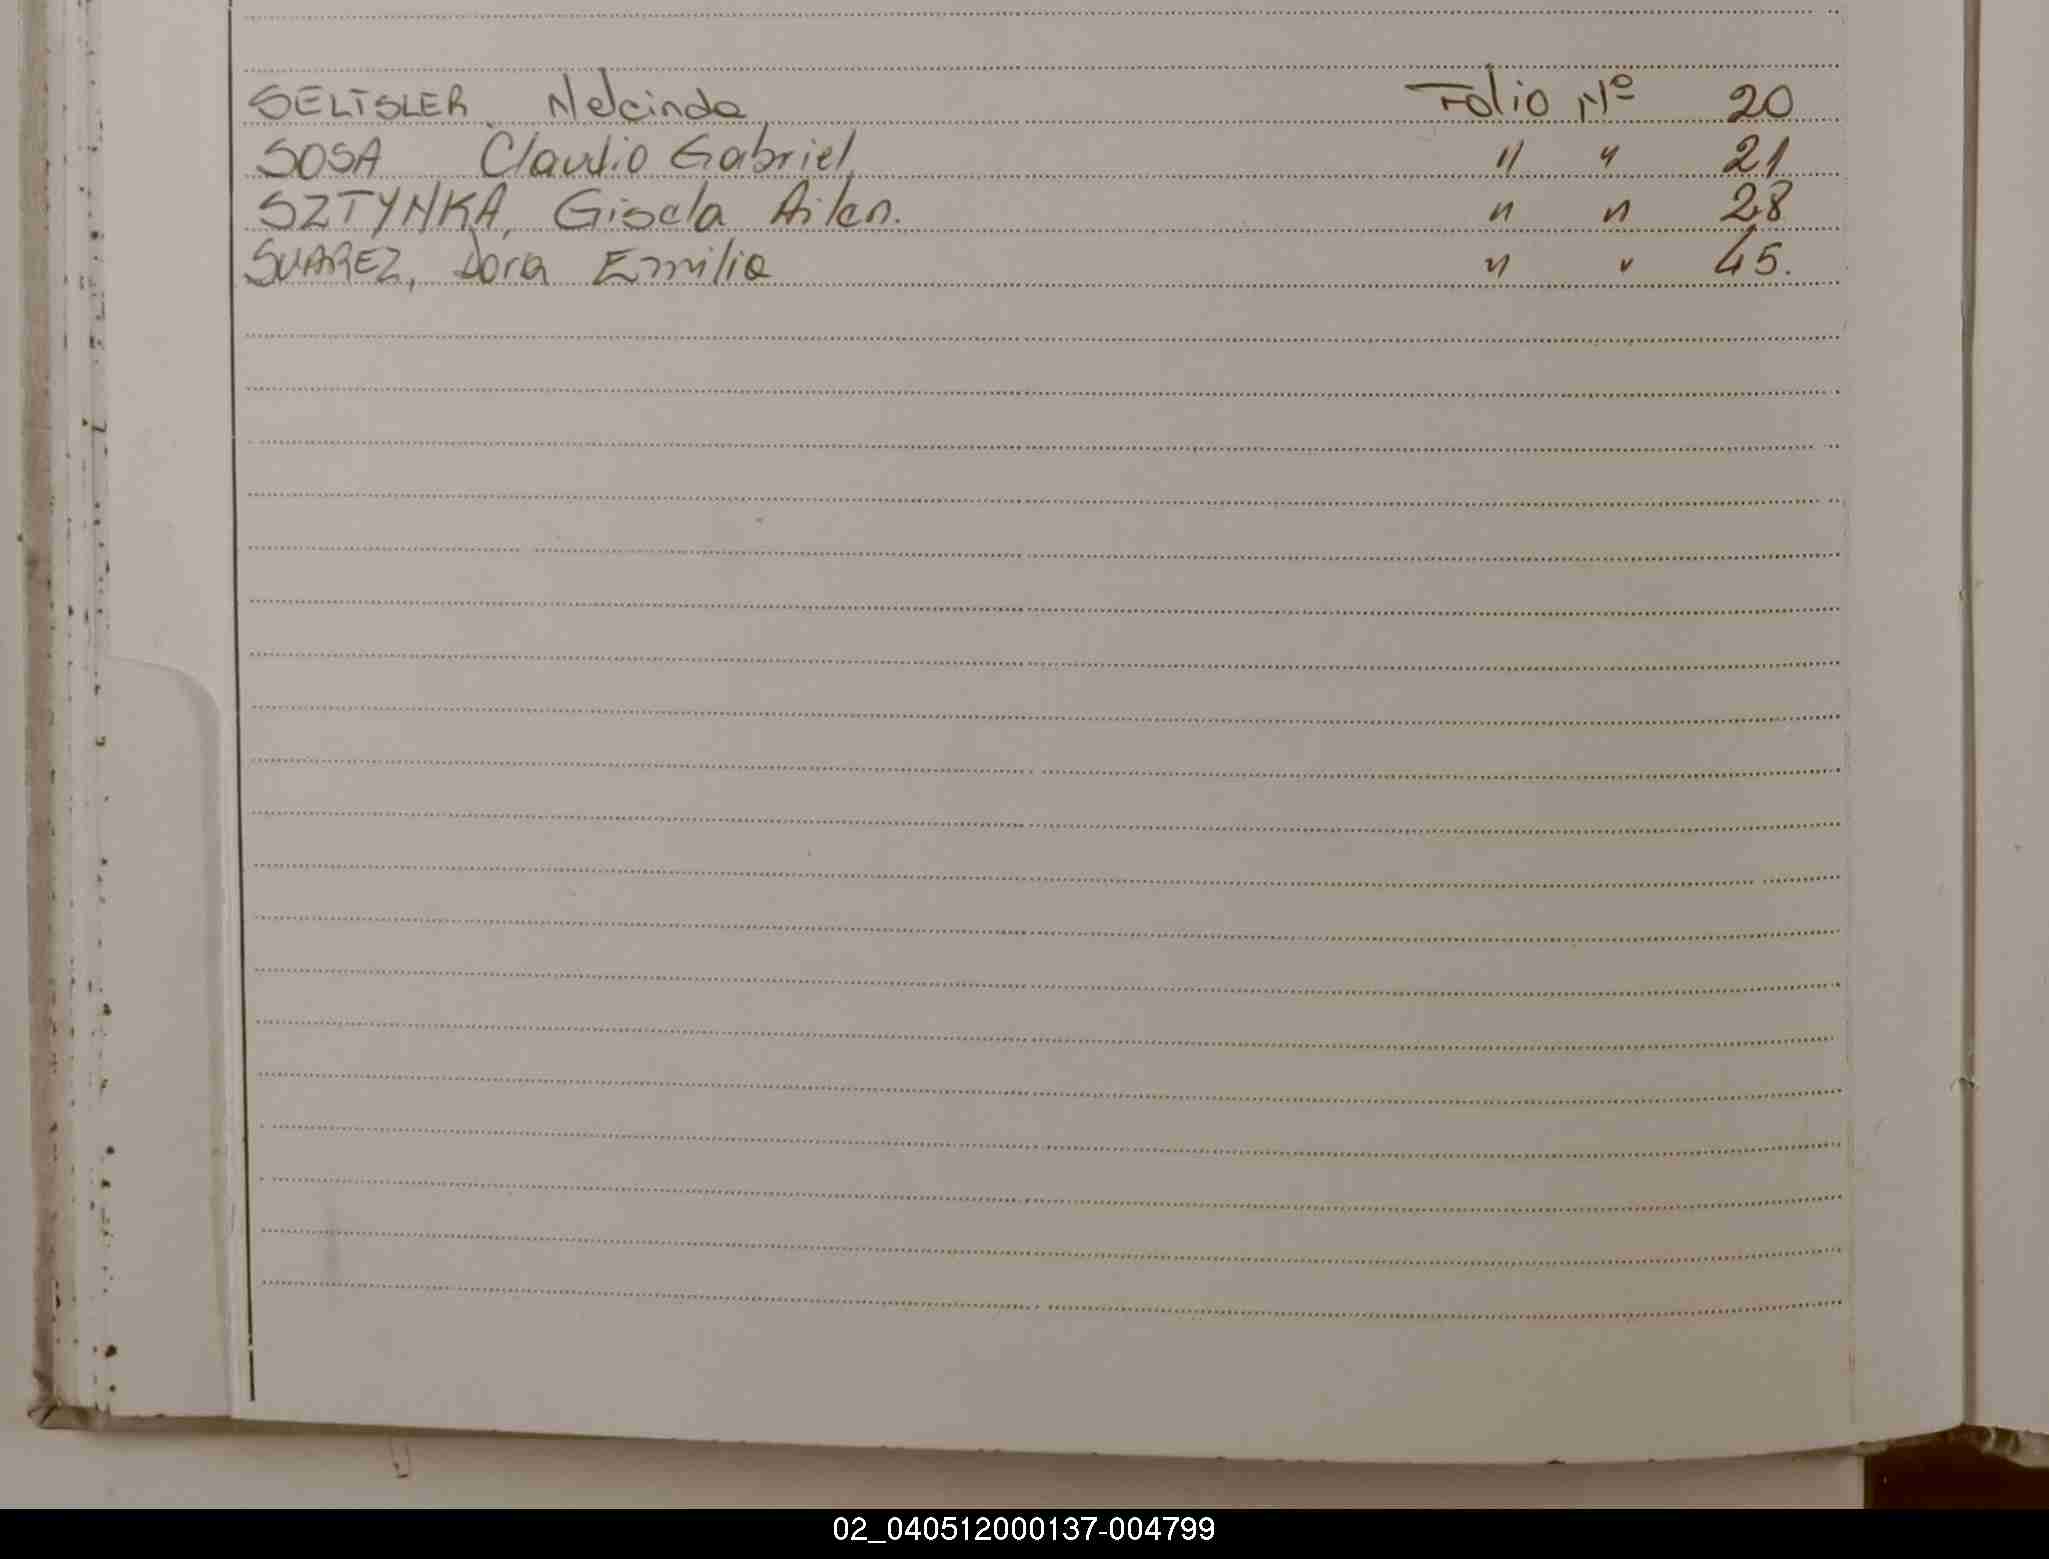 SELISLER, Nelcinda Folio Nº 20
SOSA Claudio Gabriel. " " 21
SZTYNKA, Gisela Ailen. " " 28
SUAREZ, Dora Emilia " " 45.
02_040512000137-004799